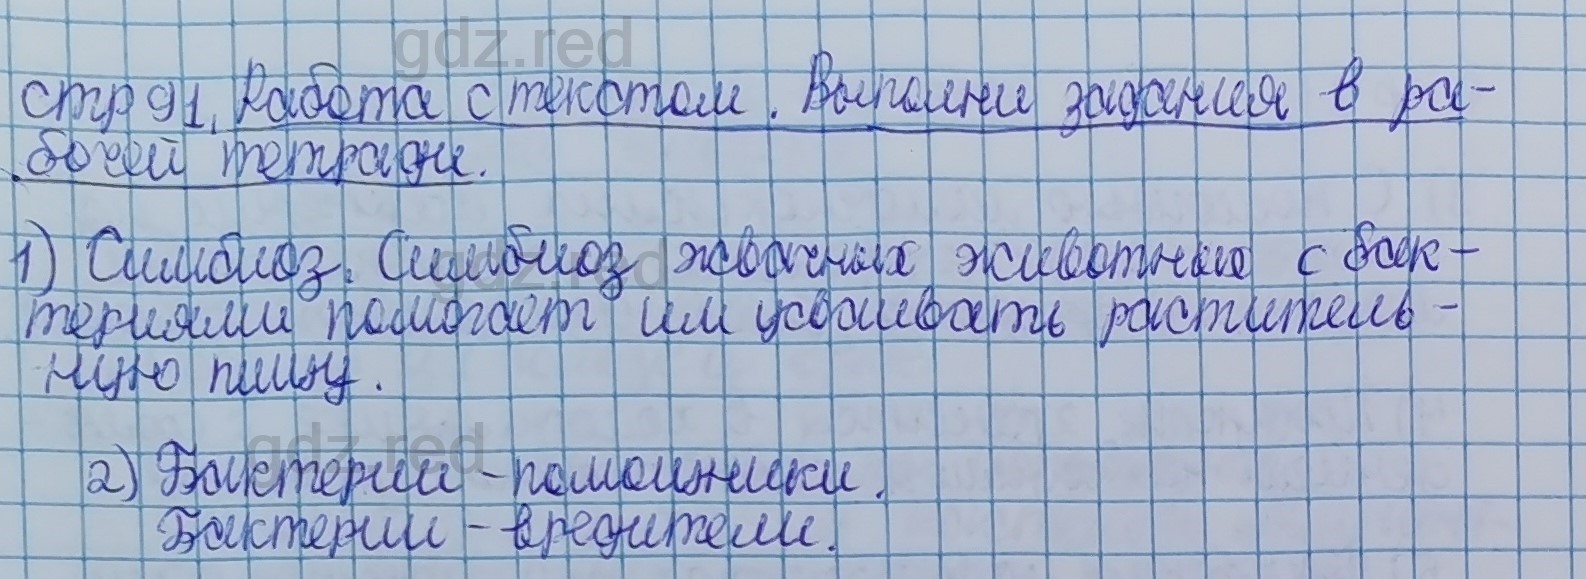 gdz.red
стр 91. Работа с текстом. Выполни задания в ра-
бочей тетради.
1) Симбиоз. Симбиоз жвачных животных с бак-
gdz.red
териями помогает им усваивать раститель-
ную пищу.
gdz.red
2) Бактерии - помощники.
Бактерии - вредители.